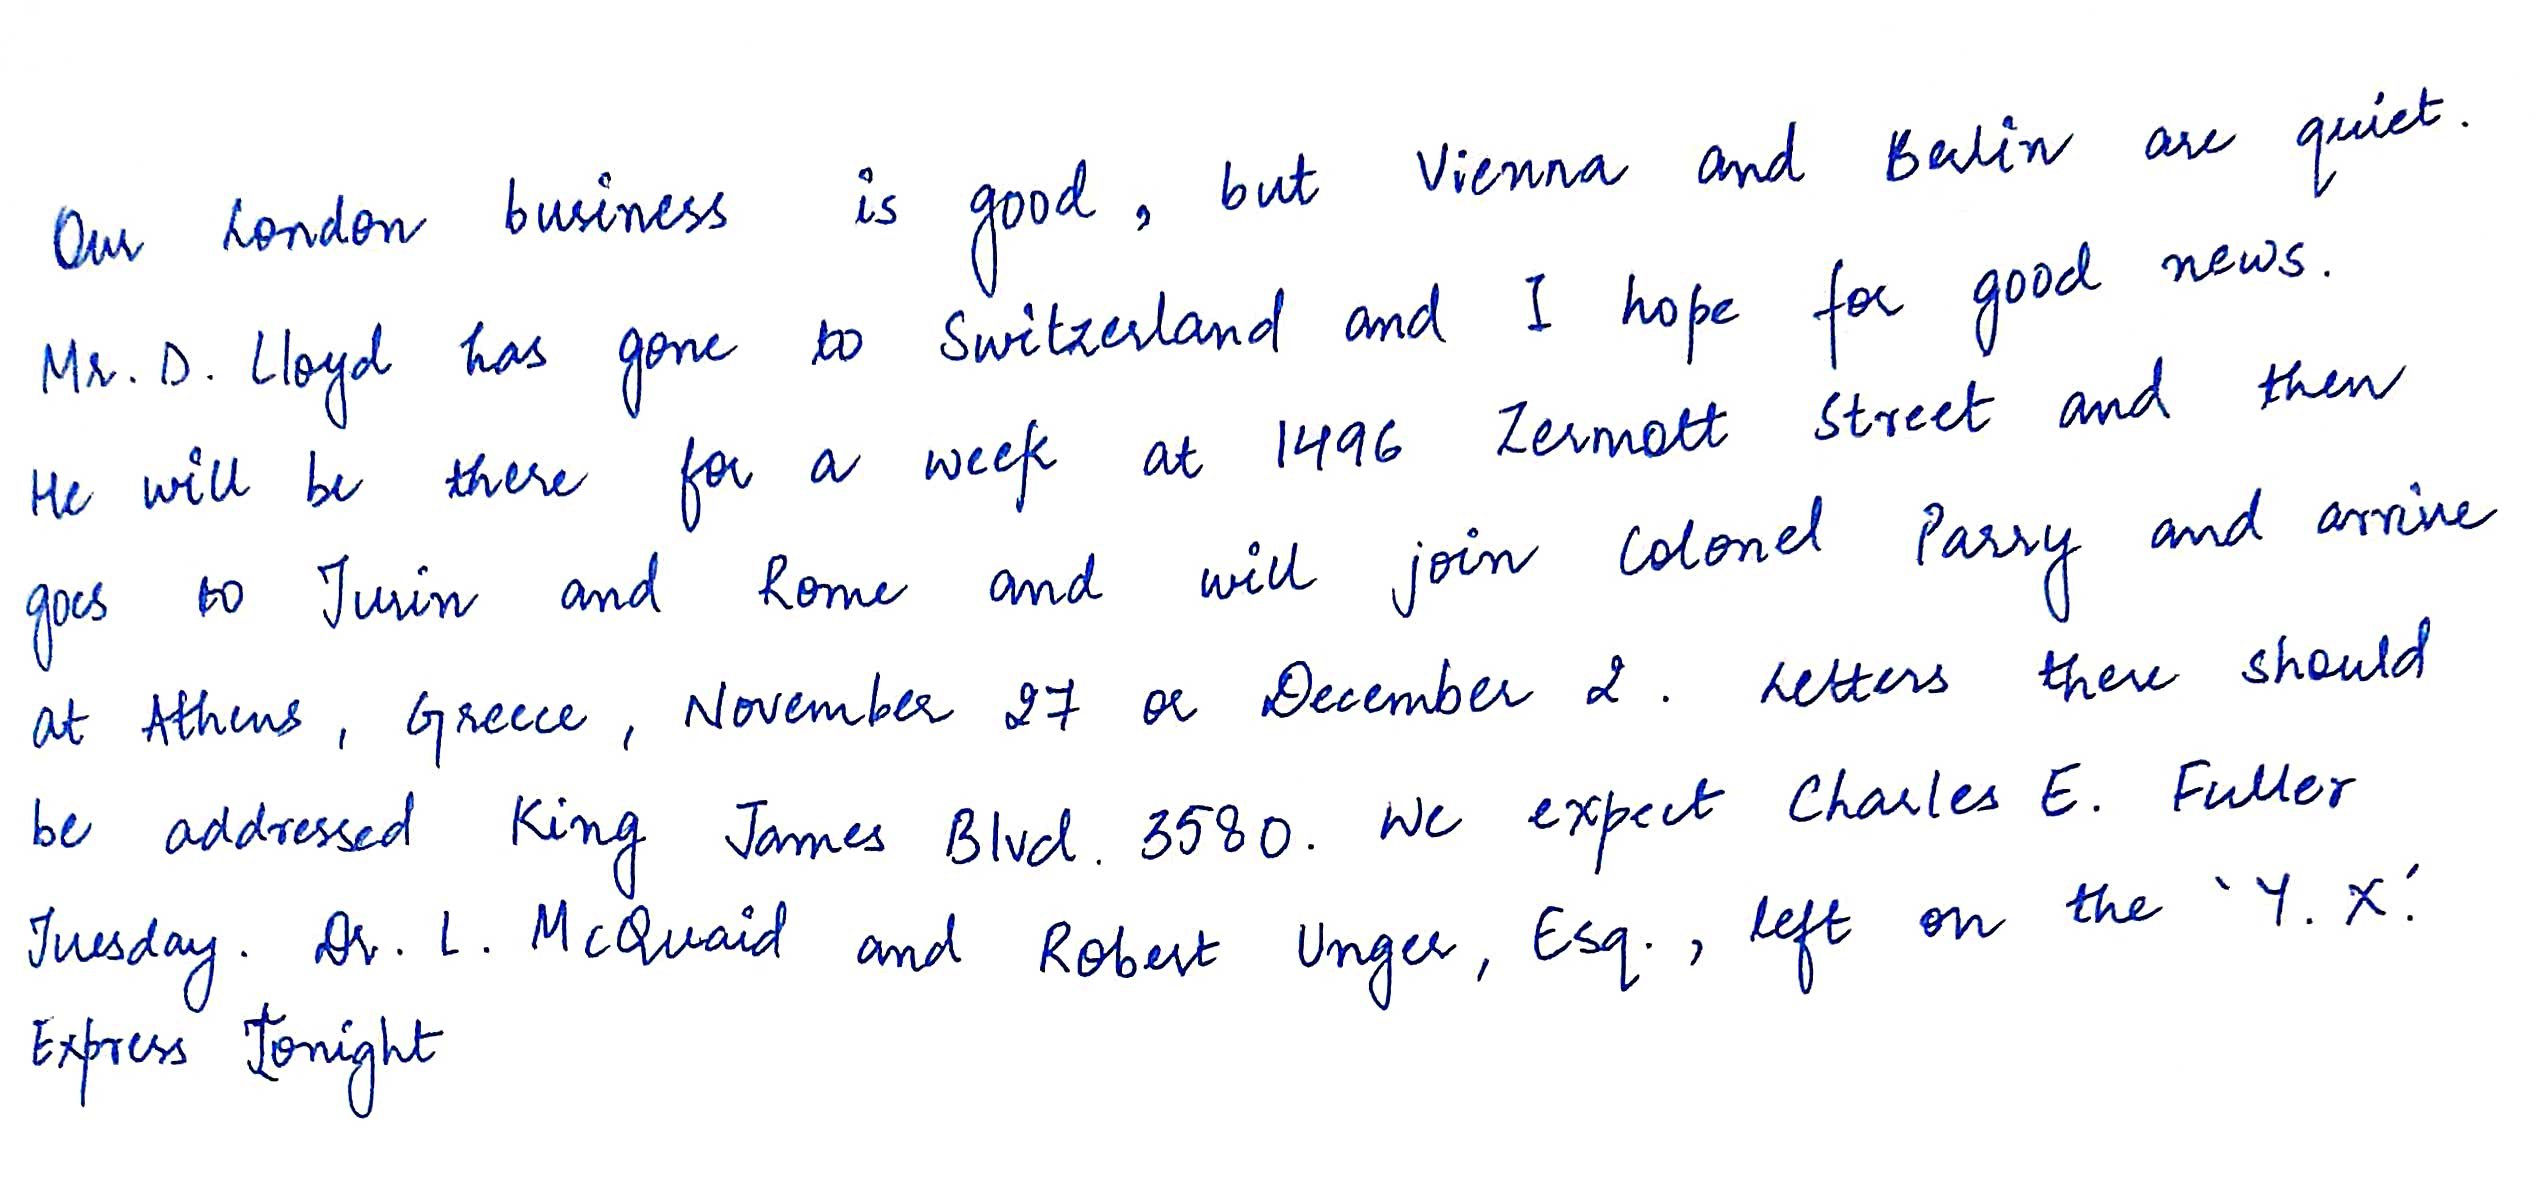 Our London business is good, but Vienna and Berlin are quiet.
Mr. D. Lloyd has gone to Switzerland and I hope for good news.
He will be there for a week at 1496 Zermott Street and then
goes to Turin and Rome and will join Colonel Parry and arrive
at Athens, Greece, November 27 or December 2. Letters there should
be addressed King James Blvd. 3580. We expect Charles E. Fuller
Tuesday. Dr. L. McQuaid and Robert Unger, Esq., left on the 'Y. X.'
Express Tonight